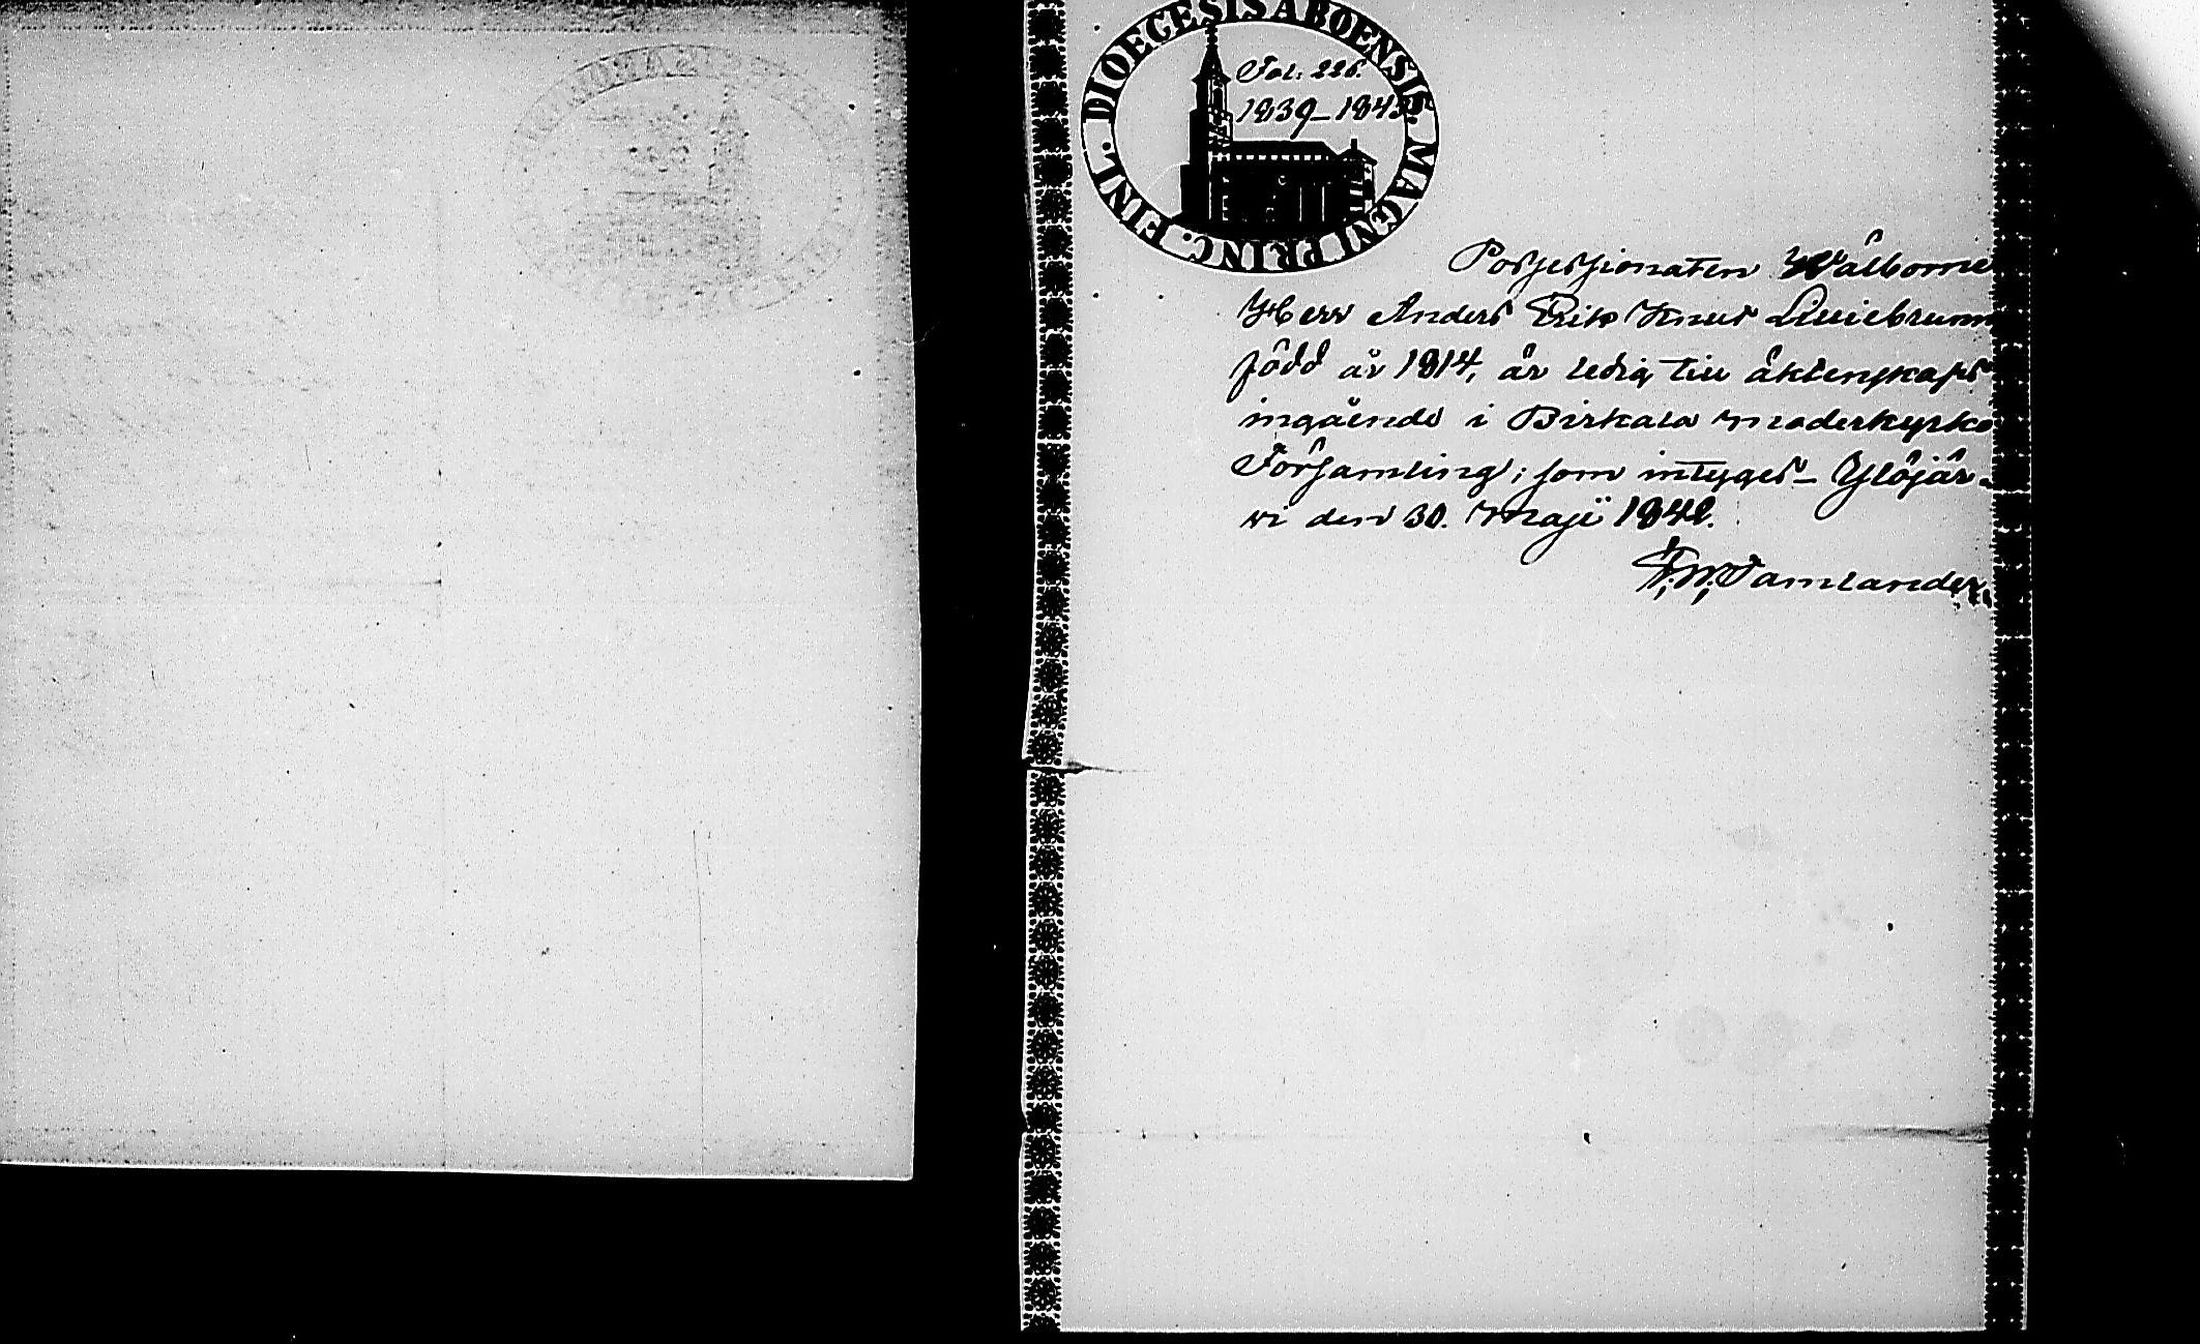 DIOECESIS ABOENSIS. MAGNI PRINC. FINL.
Fol: 226.
1839–1845.
Possessionaten Wälborne
Herr Anders Erik Knut Lilliebrunn
född år 1814, är ledig till äktenskaps
ingående i Birkala moderkyrko
Församling; som intygas – Ylöjär-
vi den 30. Maji
Tamlander